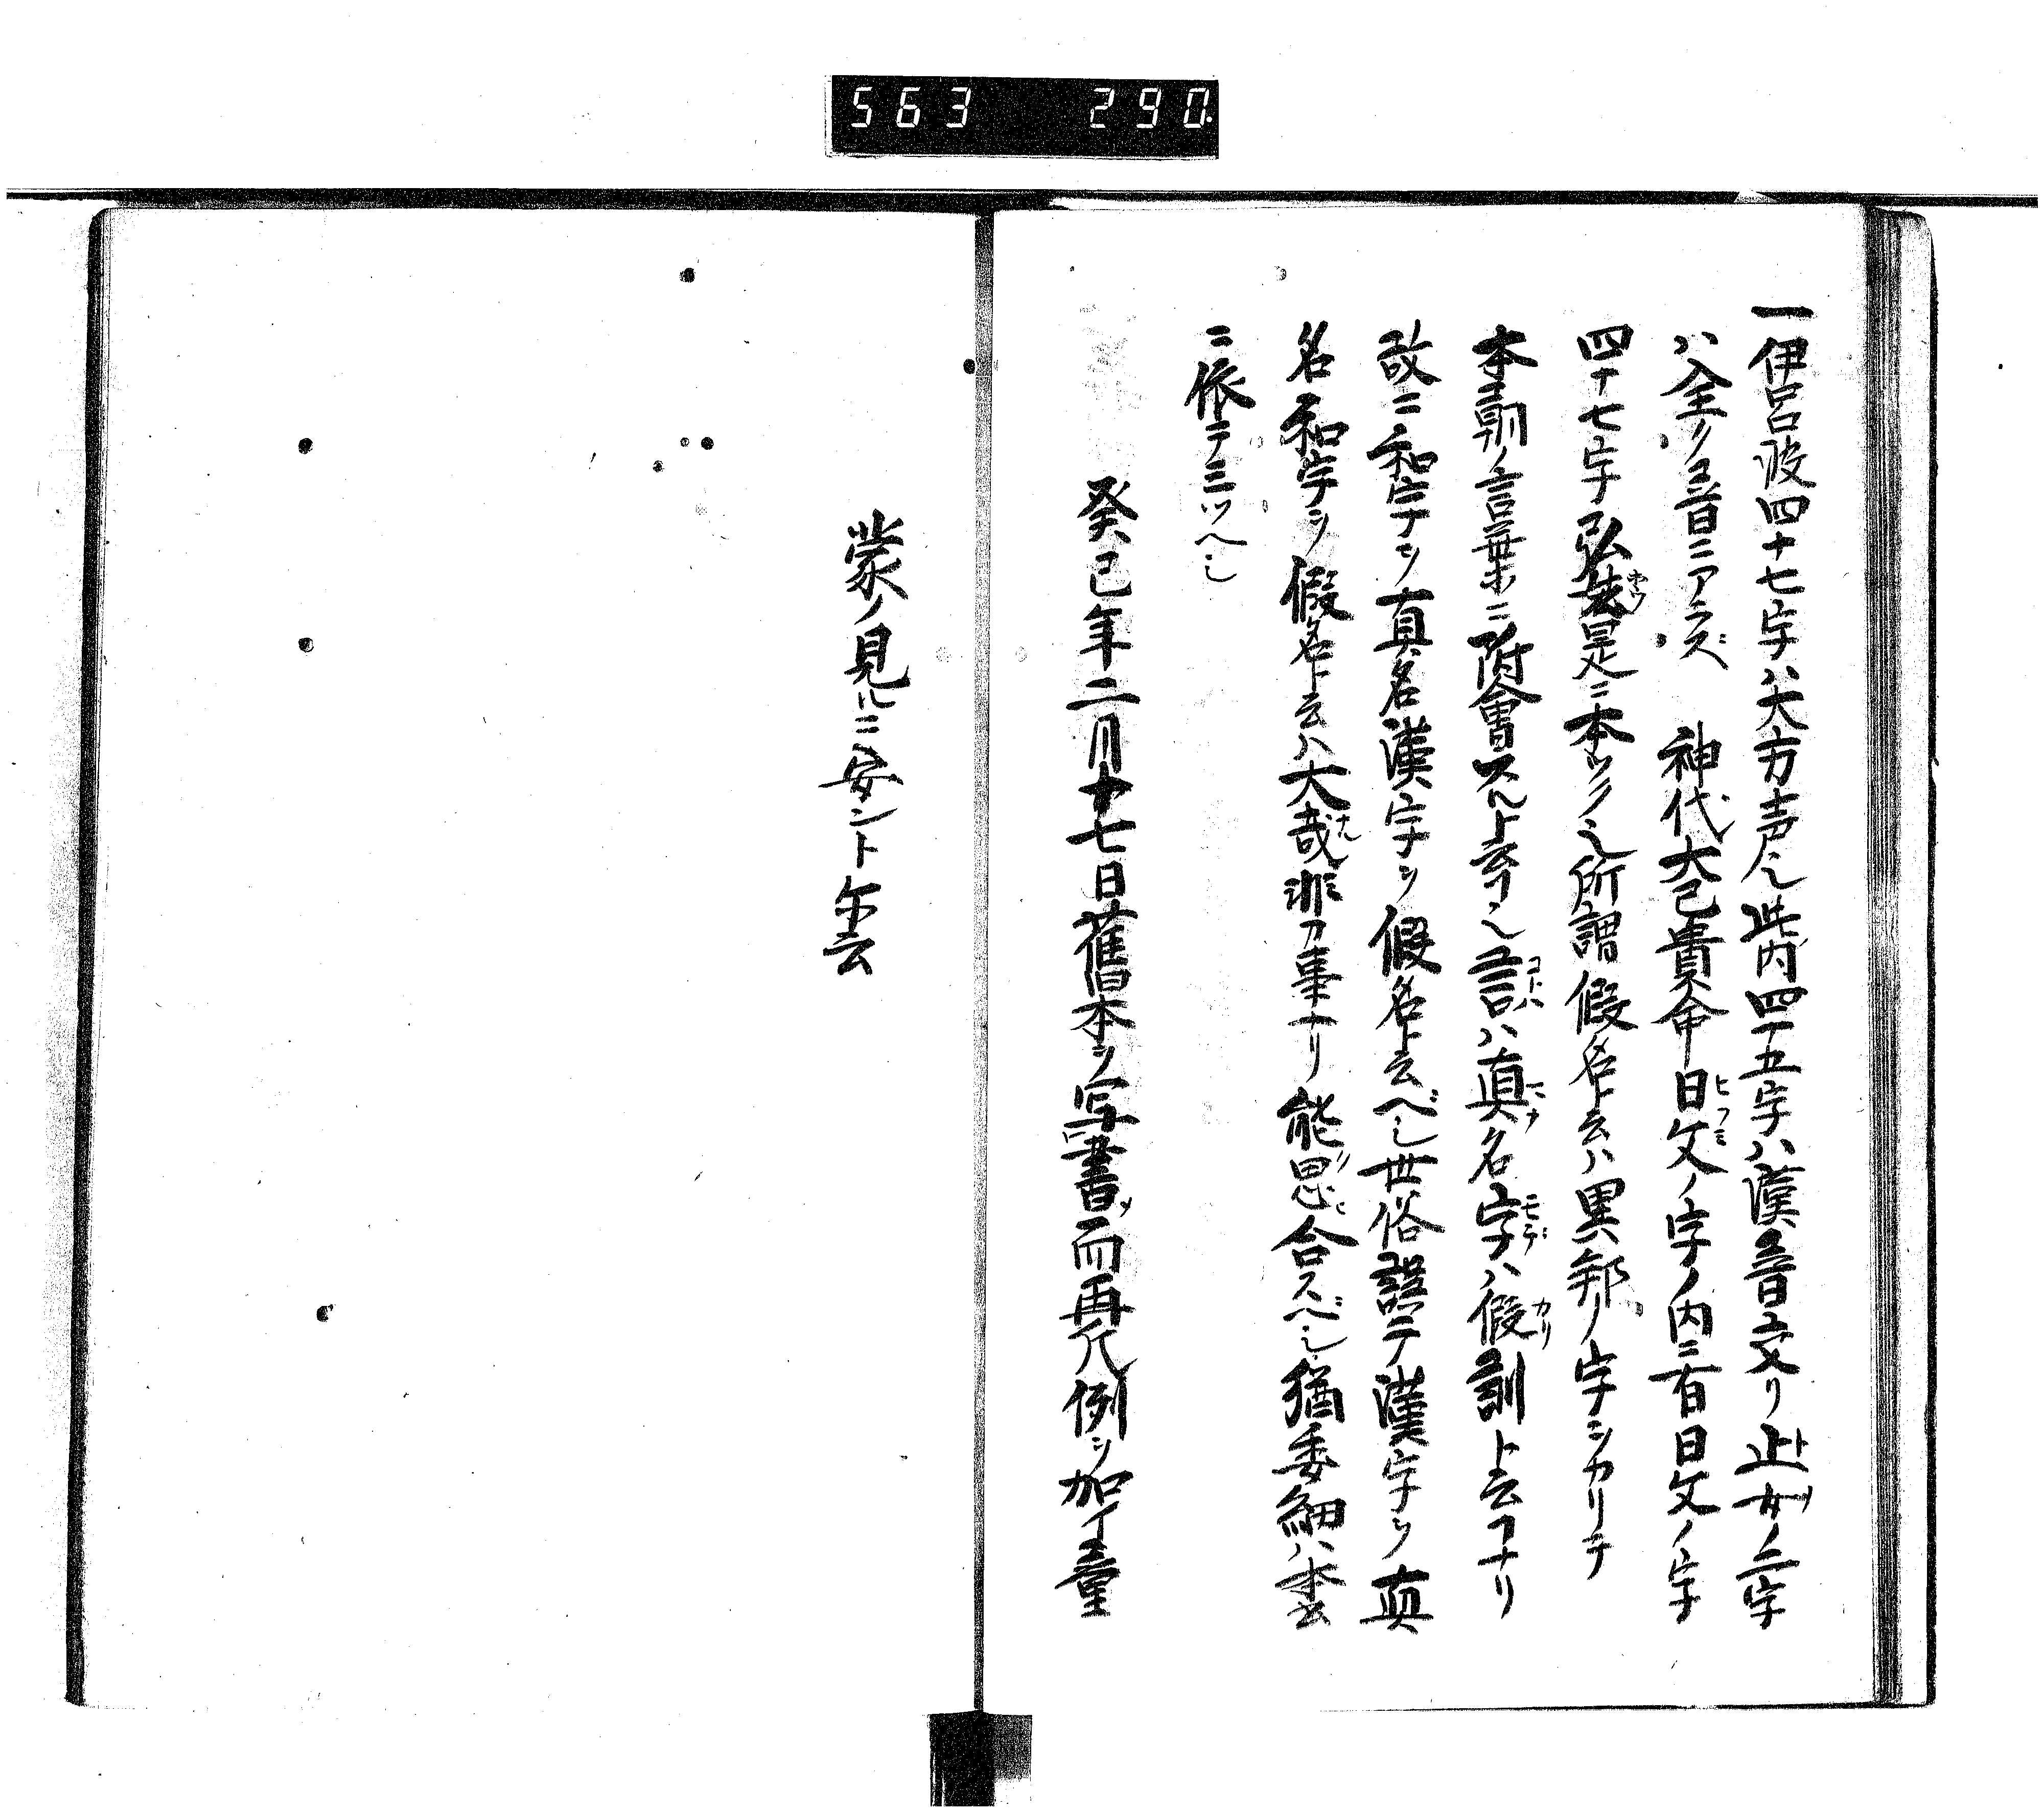 563 290.
一伊呂波四十七字ハ大方声也此内四十五字ハ漢音交リ止女ノ二字
ハ全ク音ニアラズ 神代大己貴命日文ノ字ノ内三百日文ノ字
四十七字弘法是ニ本ツク也所謂假名ト云ハ異邦ノ字ヲカリテ
本朝ノ言葉ニ附會スルト云フ也言ハ真名字ハ假訓ト云フナリ
故ニ和字ヲ真名漢字ヲ假名ト云べし世俗誤テ漢字ヲ真
名和字ヲ假名ト云ハ大哉非カ事ナリ能思合スべし猶委細ハ
ニ依テミツヘし
癸巳年二月十七日舊本ヲ写書而再凡例ヲ加イ童
蒙ノ見ルニ安シト尓云